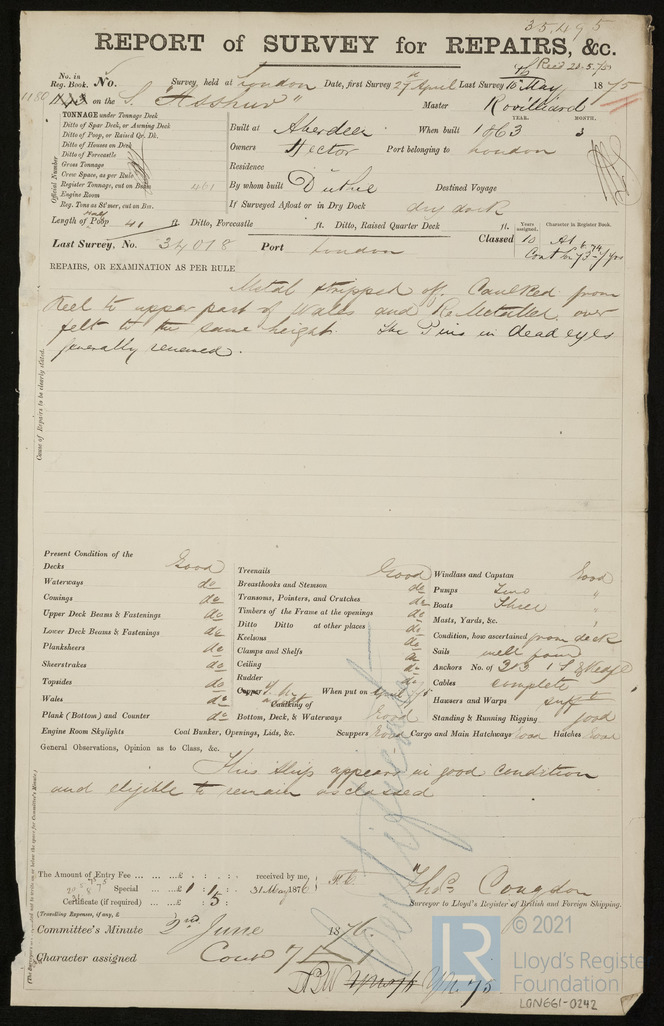 35,495
REPORT of SURVEY for REPAIRS, &c.
No. in Reg. Book. No. Survey, held at London Date, first Survey 27th April Last Survey 10th May 1875
1180 on the S. "Assaye" Master Rovilliard
TONNAGE under Tonnage Deck
Ditto of Spar Deck, or Awning Deck
Ditto of Poop, or Raised Qr. Dk.
Ditto of Houses on Deck
Ditto of Forecastle
Gross Tonnage
Crew Space, as per Rule
Register Tonnage, cut on Beam 461
Engine Room
Reg. Tons as St'mer, cut on Bm.
Official Number
YEAR. MONTH.
Built at Aberdeen When built 1863 3
Owners Hector Port belonging to London
Residence
By whom built Duthie Destined Voyage
If Surveyed Afloat or in Dry Dock dry dock
Length of Half Poop 41 ft. Ditto, Forecastle ft. Ditto, Raised Quarter Deck ft.
Years assigned. Character in Register Book.
Last Survey, No. 34018 Port London Classed 10 A1 6.74
Cont
REPAIRS, OR EXAMINATION AS PER RULE
Metal stripped off. Caulked from
Keel to upper part of Wales and Remetalled over
felt to the same height. The Pins in dead eyes
generally renewed.
Cause of Repairs to be clearly stated.
Present Condition of the
Decks Good
Waterways do
Comings do
Upper Deck Beams & Fastenings do
Lower Deck Beams & Fastenings do
Planksheers do
Sheerstrakes do
Topsides do
Wales do
Plank (Bottom) and Counter do
Engine Room Skylights Coal Bunker, Openings, Lids, &c.
Treenails Good
Breasthooks and Stemson do
Transoms, Pointers, and Crutches do
Timbers of the Frame at the openings do
Ditto Ditto at other places do
Keelsons do
Clamps and Shelfs do
Ceiling do
Rudder do
Copper When put on
Caulking of
Bottom, Deck, & Waterways Good
Scuppers Good Cargo and Main Hatchways Good Hatches Good
Windlass and Capstan Good
Pumps Two "
Boats Three "
Masts, Yards, &c. "
Condition, how ascertained from deck
Sails well found
Anchors No. of 3 B 1 S. 2 Kedge
Cables complete
Hawsers and Warps sufft
Standing & Running Rigging good
General Observations, Opinion as to Class, &c.
This Ship appears in good condition
and eligible to remain as classed
The Amount of Entry Fee £ : : received by me,
Special £1 : 15 : 31 May 187
Certificate (if required) : 5 :
(Travelling Expenses, if any, £
Thos. Congdon
Surveyor to Lloyd's Register of British and Foreign Shipping.
Committee's Minute 2nd June 187
Character assigned
Certificate
© 2021
LR
Lloyd's Register
Foundation
LON661-0242